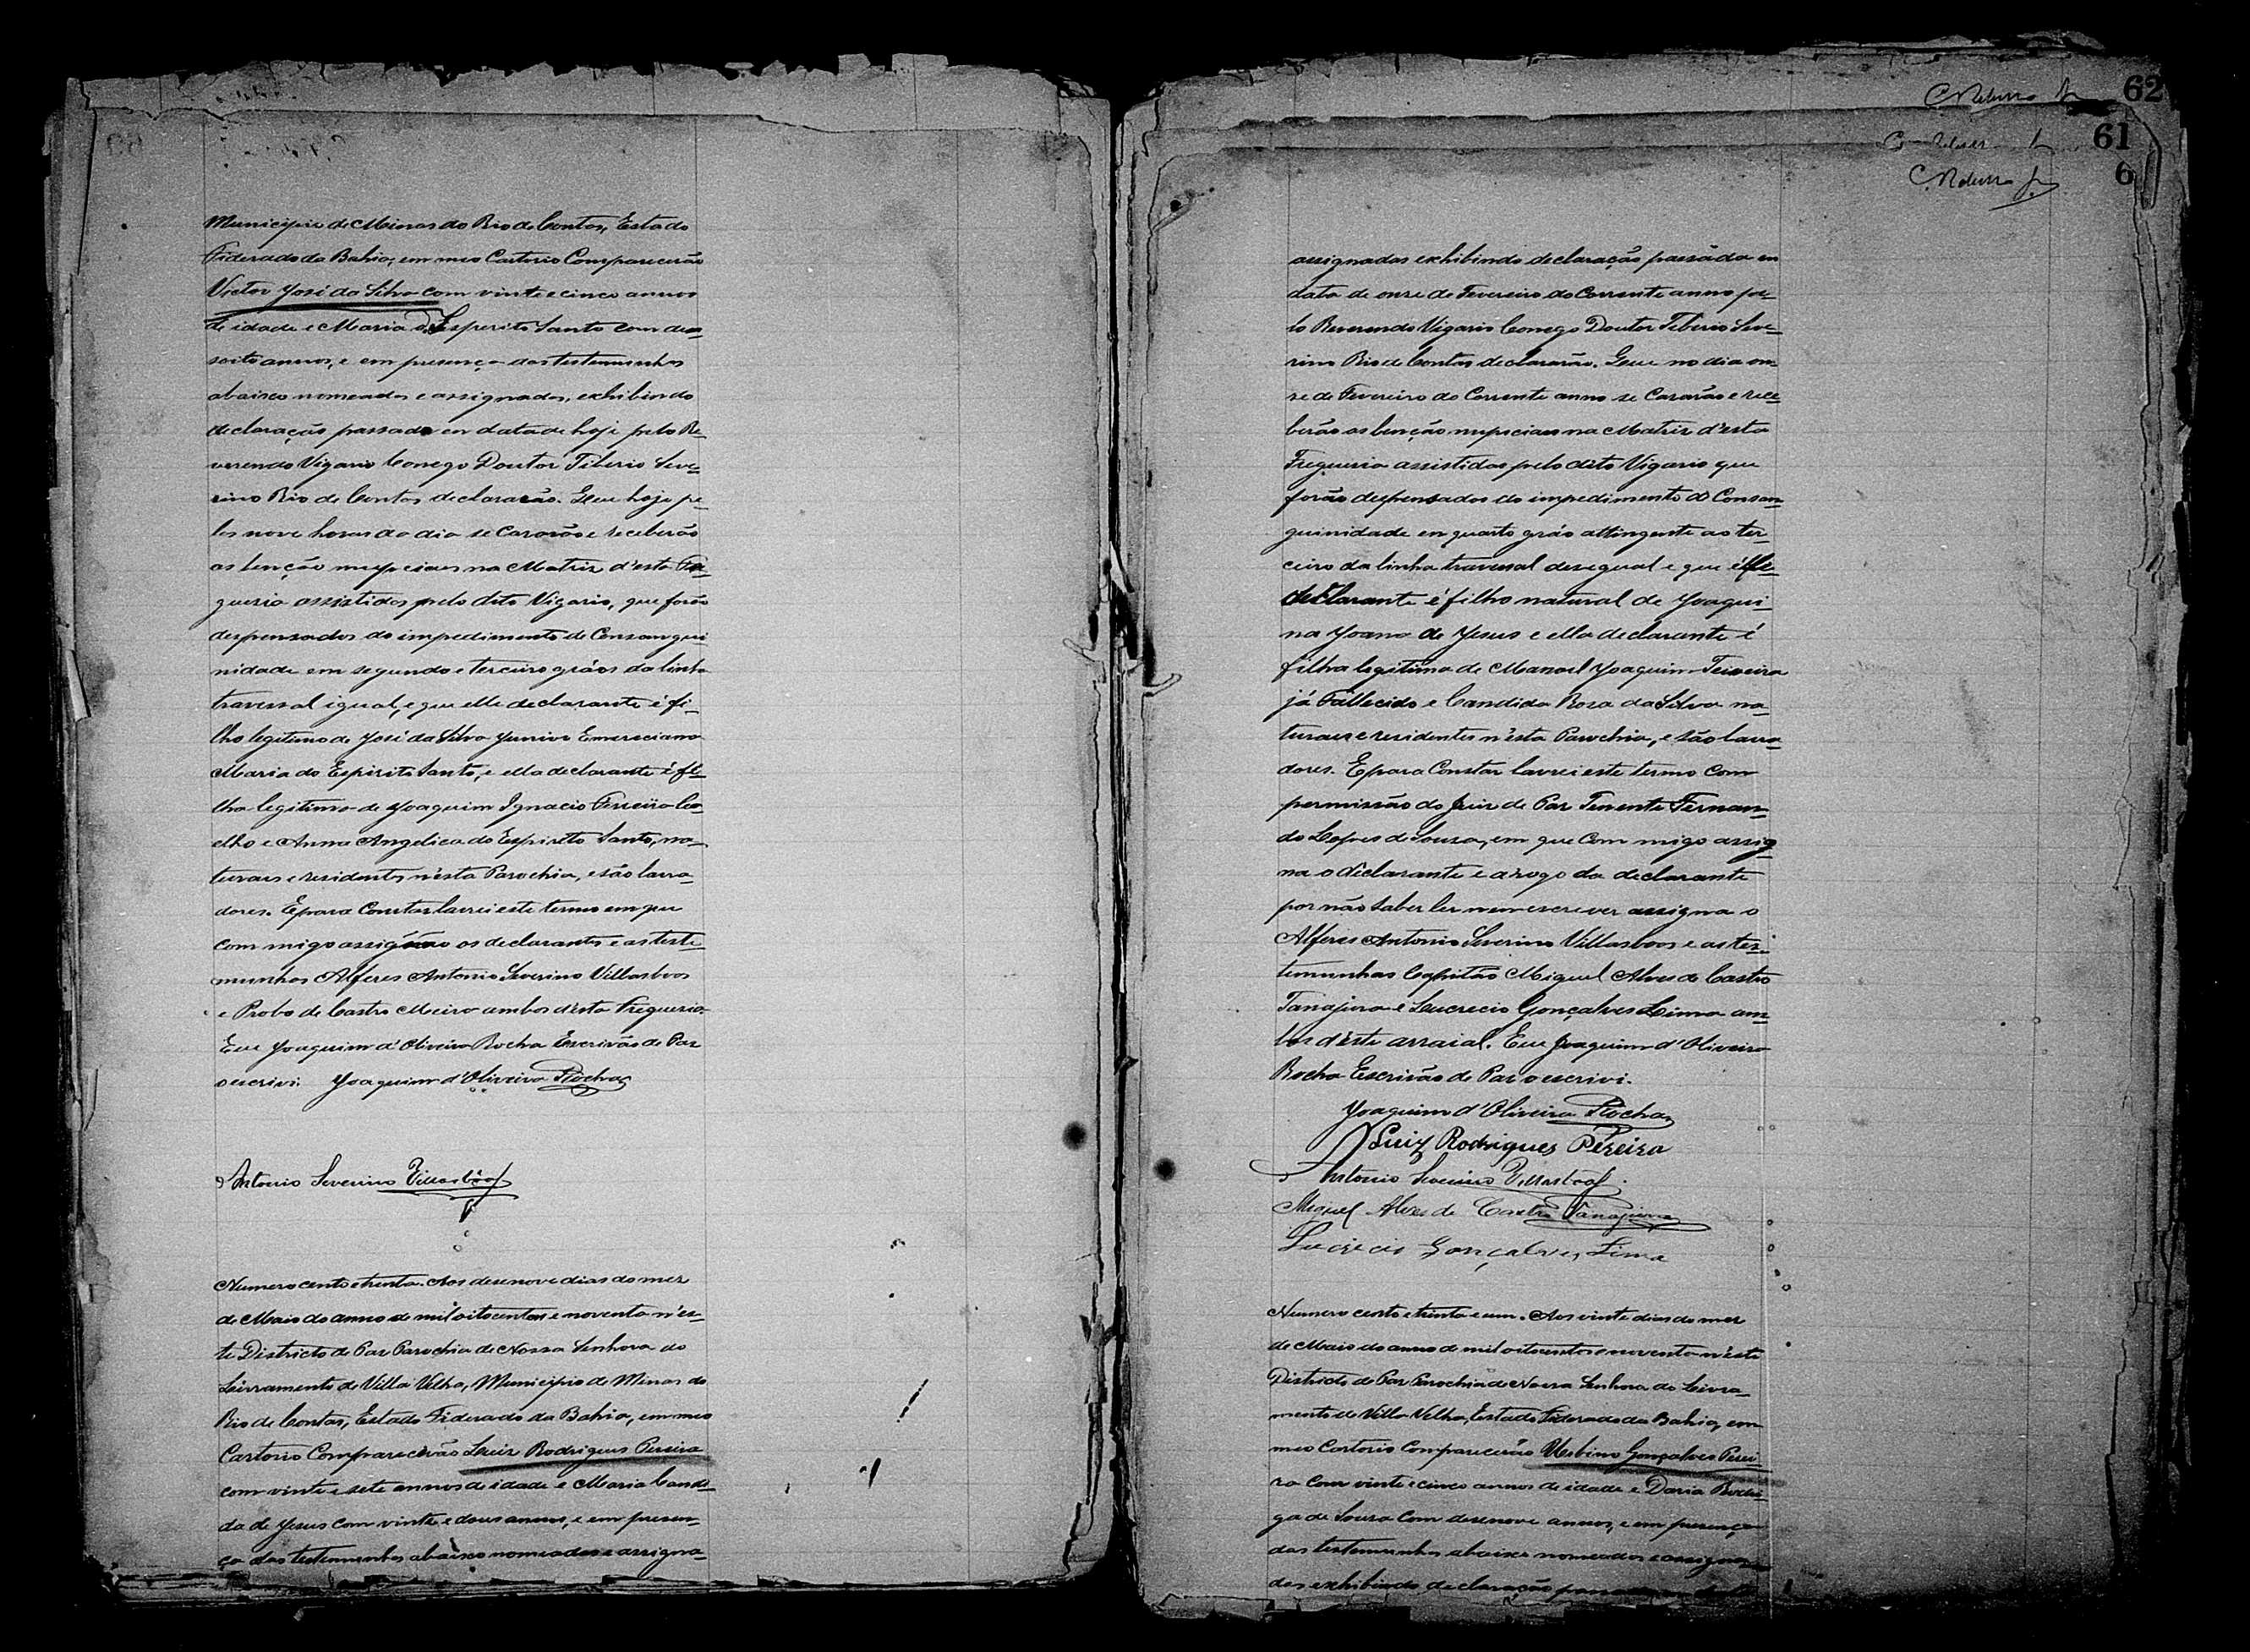 Municipio de Minas do Rio de Contas, Estado
Fiderado da Bahia, em meo Cartorio Comparecerão
Victor José da Silva com vinte e cinco annos
de idade e Maria do Esperito Santo com des
soito annos, e em presença das testemunhas
abaixo nomeados e assignados, exhibindo
declaração passada em data de hoje pelo Re-
verendo Vigario Conego Doutor Tiberio Seve-
rino Rio de Contas declararão. Que hoje pe-
las nove horas do dia se Casarão e receberão
as benção nupciaes na Matriz d'esta Fre-
guesia assistidos pelo dito Vigario, que forão
despensados do impedimento de Consangui
nidade em segundo e terceiro gráos da linha
traversal igual, e que elle declarante é fi-
lho legitimo de José da Silva Junior e Emerciana
Maria do Espirito Santo, e ella declarante é fi-
lha legitima de Joaquim Ignacio Ferreira Co-
elho e Anna Angelica do Espirito Santo, na-
turaes e residentes n'esta Parochia, e são lavra-
dores. E para Constar lavrei este termo em que
com migo assignão os declarantes e as teste-
munhas Alferes Antonio Severino Villasboas
e Probo de Castro Meira ambos d'esta Freguesia.
Eu Joaquim d'Oliveira Rocha Escrivão de Paz
o escrivi. Joaquim d'Oliveira Rocha
Antonio Severino Villasbôas
Numero cento e trinta. Aos desenove dias do mez
de Maio do anno de mil oitocentos e noventa n'es-
te Districto de Paz Parochia de Nossa Senhora do
Livramento de Villa Velha, Municipio de Minas do
Rio de Contas, Estado Fiderado da Bahia, em meo
Cartorio Comparecerão Luiz Rodrigues Pereira
com vinte e sete annos de idade e Maria Candi-
da de Jesus com vinte e dous annos, e em presen-
ça das testemunhas abaixo nomeados e assigna-
62
61
6
assignados exhibindo declaração passada em
data de onze de Fevereiro do Corrente anno pe-
lo Reverendo Vigario Conego Doutor Tiberio Seve-
rino Rio de Contas declararão. Que no dia on-
ze de Fevereiro do Corrente anno se Casarão e rece-
berão as benção nupciaes na Matriz d'esta
Freguesia assistidos pelo dito Vigario que
forão despensados do impedimento de Consan-
guinidade em quarto gráo attingente ao ter-
ceiro da linha traversal desegual e que elle
declarante é filho natural de Joaqui-
na Joana de Jesus e ella declarante é
filha legitima de Manoel Joaquim Teixeira
já Fallecido e Candida Rosa da Silva na-
turaes e residentes n'esta Parochia, e são lavra-
dores. E para Constar lavrei este termo com
permissão do Juiz de Paz Tenente Fernan-
do Lopes de Souza, em que Com migo assig-
na o declarante e a rogo da declarante
por não saber ler nem escrever assigna o
Alferes Antonio Severino Villasboas e as tes-
temunhas Capitão Miguel Alves de Castro
Tanajura e Lucrecio Gonçalves Lima am-
bos d'este arraial. Eu Joaquim d'Oliveira
Rocha Escrivão de Paz o escrivi.
Joaquim d'Oliveira Rocha
Luiz Rodrigues Pereira
Antonio Severino Villasbôas
Miguel Alves de Castro Tanajura
Lucrecio Gonçalves Lima
Numero cento e trinta e um. Aos vinte dias do mez
de Maio do anno de mil oitocentos e noventa n'este
Districto de Paz Parochia de Nossa Senhora do Livra-
mento de Villa Velha, Estado Fiderado da Bahia, em
meo Cartorio Comparecerão Urbino Gonçalves Perei-
ra com vinte e cinco annos de idade e Daria Rodri-
ga de Souza Com desenove annos, e em presença
das testemunhas abaixo nomeados e assigna-
dos exhibindo declaração